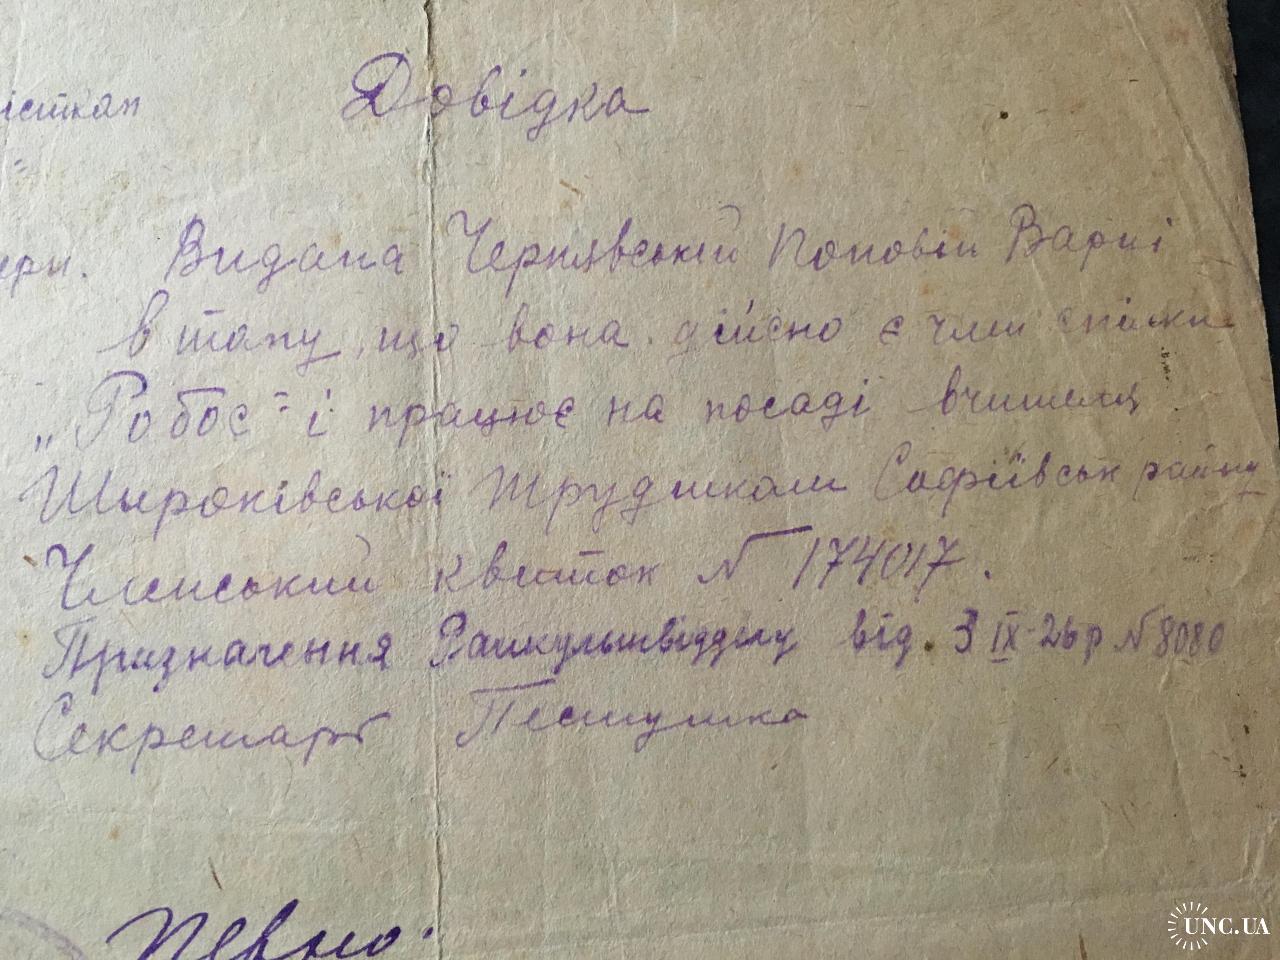 Довідка
Видана Чернявській Поповій Варці
в тому, що вона дійсно є член спілки
„Робос" і працює на посаді вчителя
Широківської трудшколи Софіївськ району
Членський квиток № 174017.
Призначення Райкультвідділу від 3 IX-26р №8080
Секретарь Пестушка
Певно.
UNC.UA